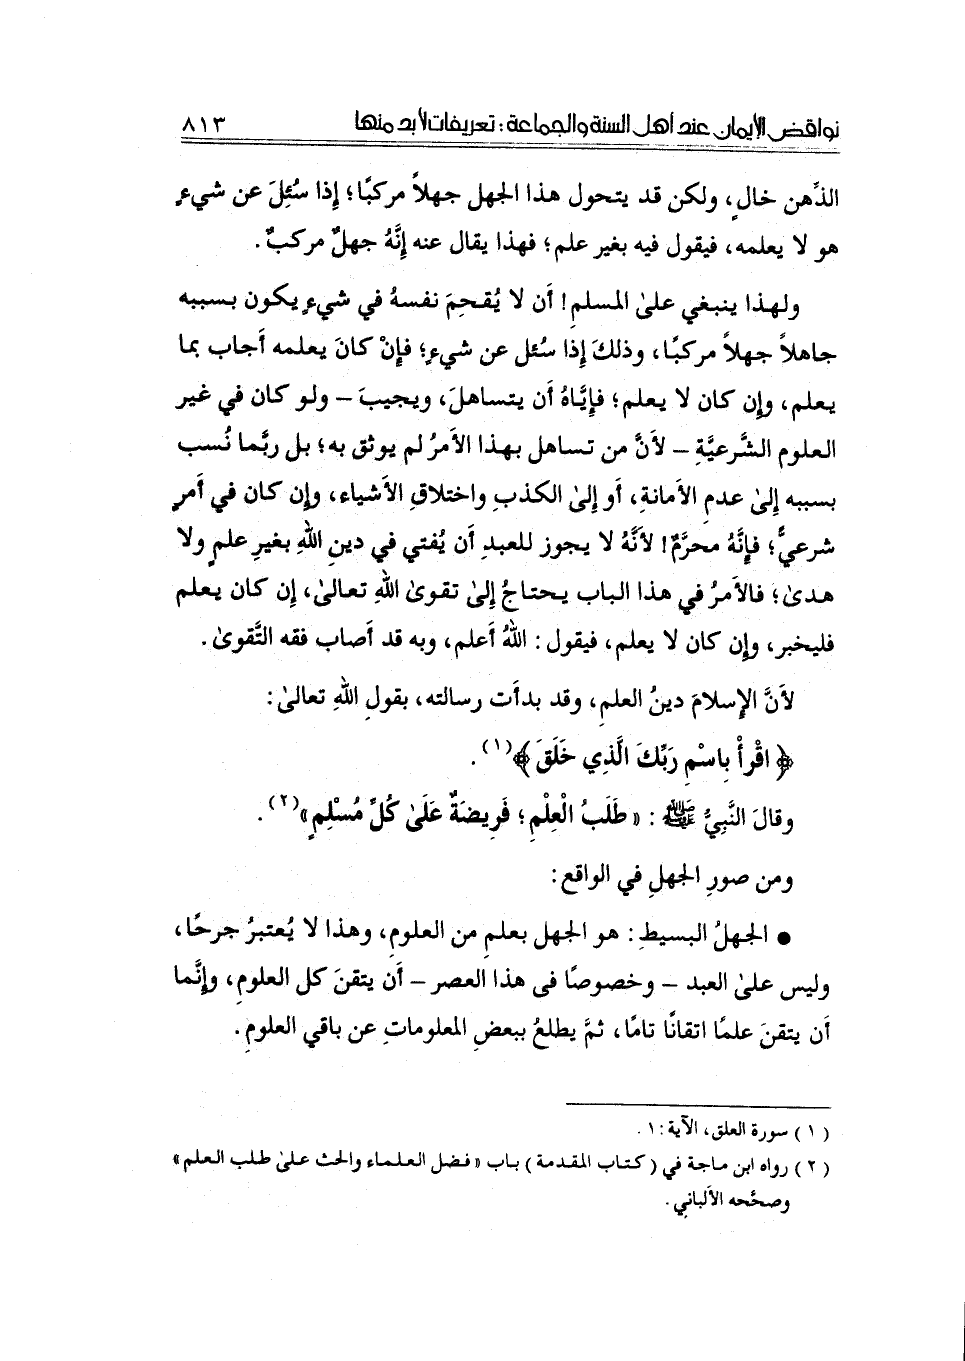 نواقض الإيمان عند أهل السنة والجماعة : تعريفات لأبد منها ٨١٣
الذِّهن خالٍ، ولكن قد يتحول هذا الجهل جهلاً مركبًا؛ إذا سُئِلَ عن شيءٍ
هو لا يعلمه، فيقول فيه بغير علم؛ فهذا يقال عنه إِنَّهُ جهلٌ مركبٌ.
ولهذا ينبغي علىٰ المسلمِ! أَن لا يُقحِمَ نفسهُ في شيءٍ يكون بسببه
جاهلاً جهلاً مركبًا، وذلكَ إِذا سُئل عن شيءٍ؛ فإنْ كانَ يعلمه أَجاب بما
يعلم، وإن كان لا يعلم؛ فإيَّاهُ أَن يتساهلَ، ويجيبَ – ولو كان في غير
العلوم الشَّرعيَّةِ – لأنَّ من تساهل بهذا الأَمرُ لم يوثق به؛ بل ربَّما نُسب
بسببه إِلىٰ عدمِ الأَمانةِ، أَو إِلىٰ الكذبِ واختلاقِ الأَشياء، وإن كان في أَمرٍ
شرعيٍّ؛ فإنَّهُ محرَّمٌ! لأَنَّهُ لا يجوز للعبدِ أَن يُفتي في دينِ اللهِ بغيرِ علمٍ ولا
هدىٰ؛ فالأمرُ في هذا الباب يحتاجُ إِلىٰ تقوىٰ اللهِ تعالىٰ، إن كان يعلم
فليخبر، وإن كان لا يعلم، فيقول : اللهُ أَعلم، وبه قد أَصاب فقه التَّقوىٰ.
لأنَّ الإِسلامَ دينُ العلمِ، وقد بدأَت رسالته، بقولِ اللهِ تعالىٰ :
﴿ اقْرَأْ بِاسْمِ رَبِّكَ الَّذِي خَلَقَ ﴾(١).
وقالَ النَّبِيُّ ﷺ : « طَلَبُ الْعِلْمِ؛ فَرِيضَةٌ عَلَىٰ كُلِّ مُسْلِمٍ »(٢).
ومن صورِ الجهلِ في الواقع :
● الجهلُ البسيطِ : هو الجهل بعلمٍ من العلومِ، وهذا لا يُعتبرُ جرحًا،
وليس علىٰ العبد – وخصوصًا فى هذا العصر – أَن يتقنَ كل العلومِ، وإنَّما
أَن يتقنَ علمًا اتقانًا تامًا، ثمَّ يطلعُ ببعضِ المعلوماتِ عن باقي العلومِ.
( ١ ) سورة العلق، الآية : ١ .
( ٢ ) رواه ابن ماجة في ( كتاب المقدمة ) باب « فضل العلماء والحث علىٰ طلب العلم »
وصحَّحه الأَلباني .